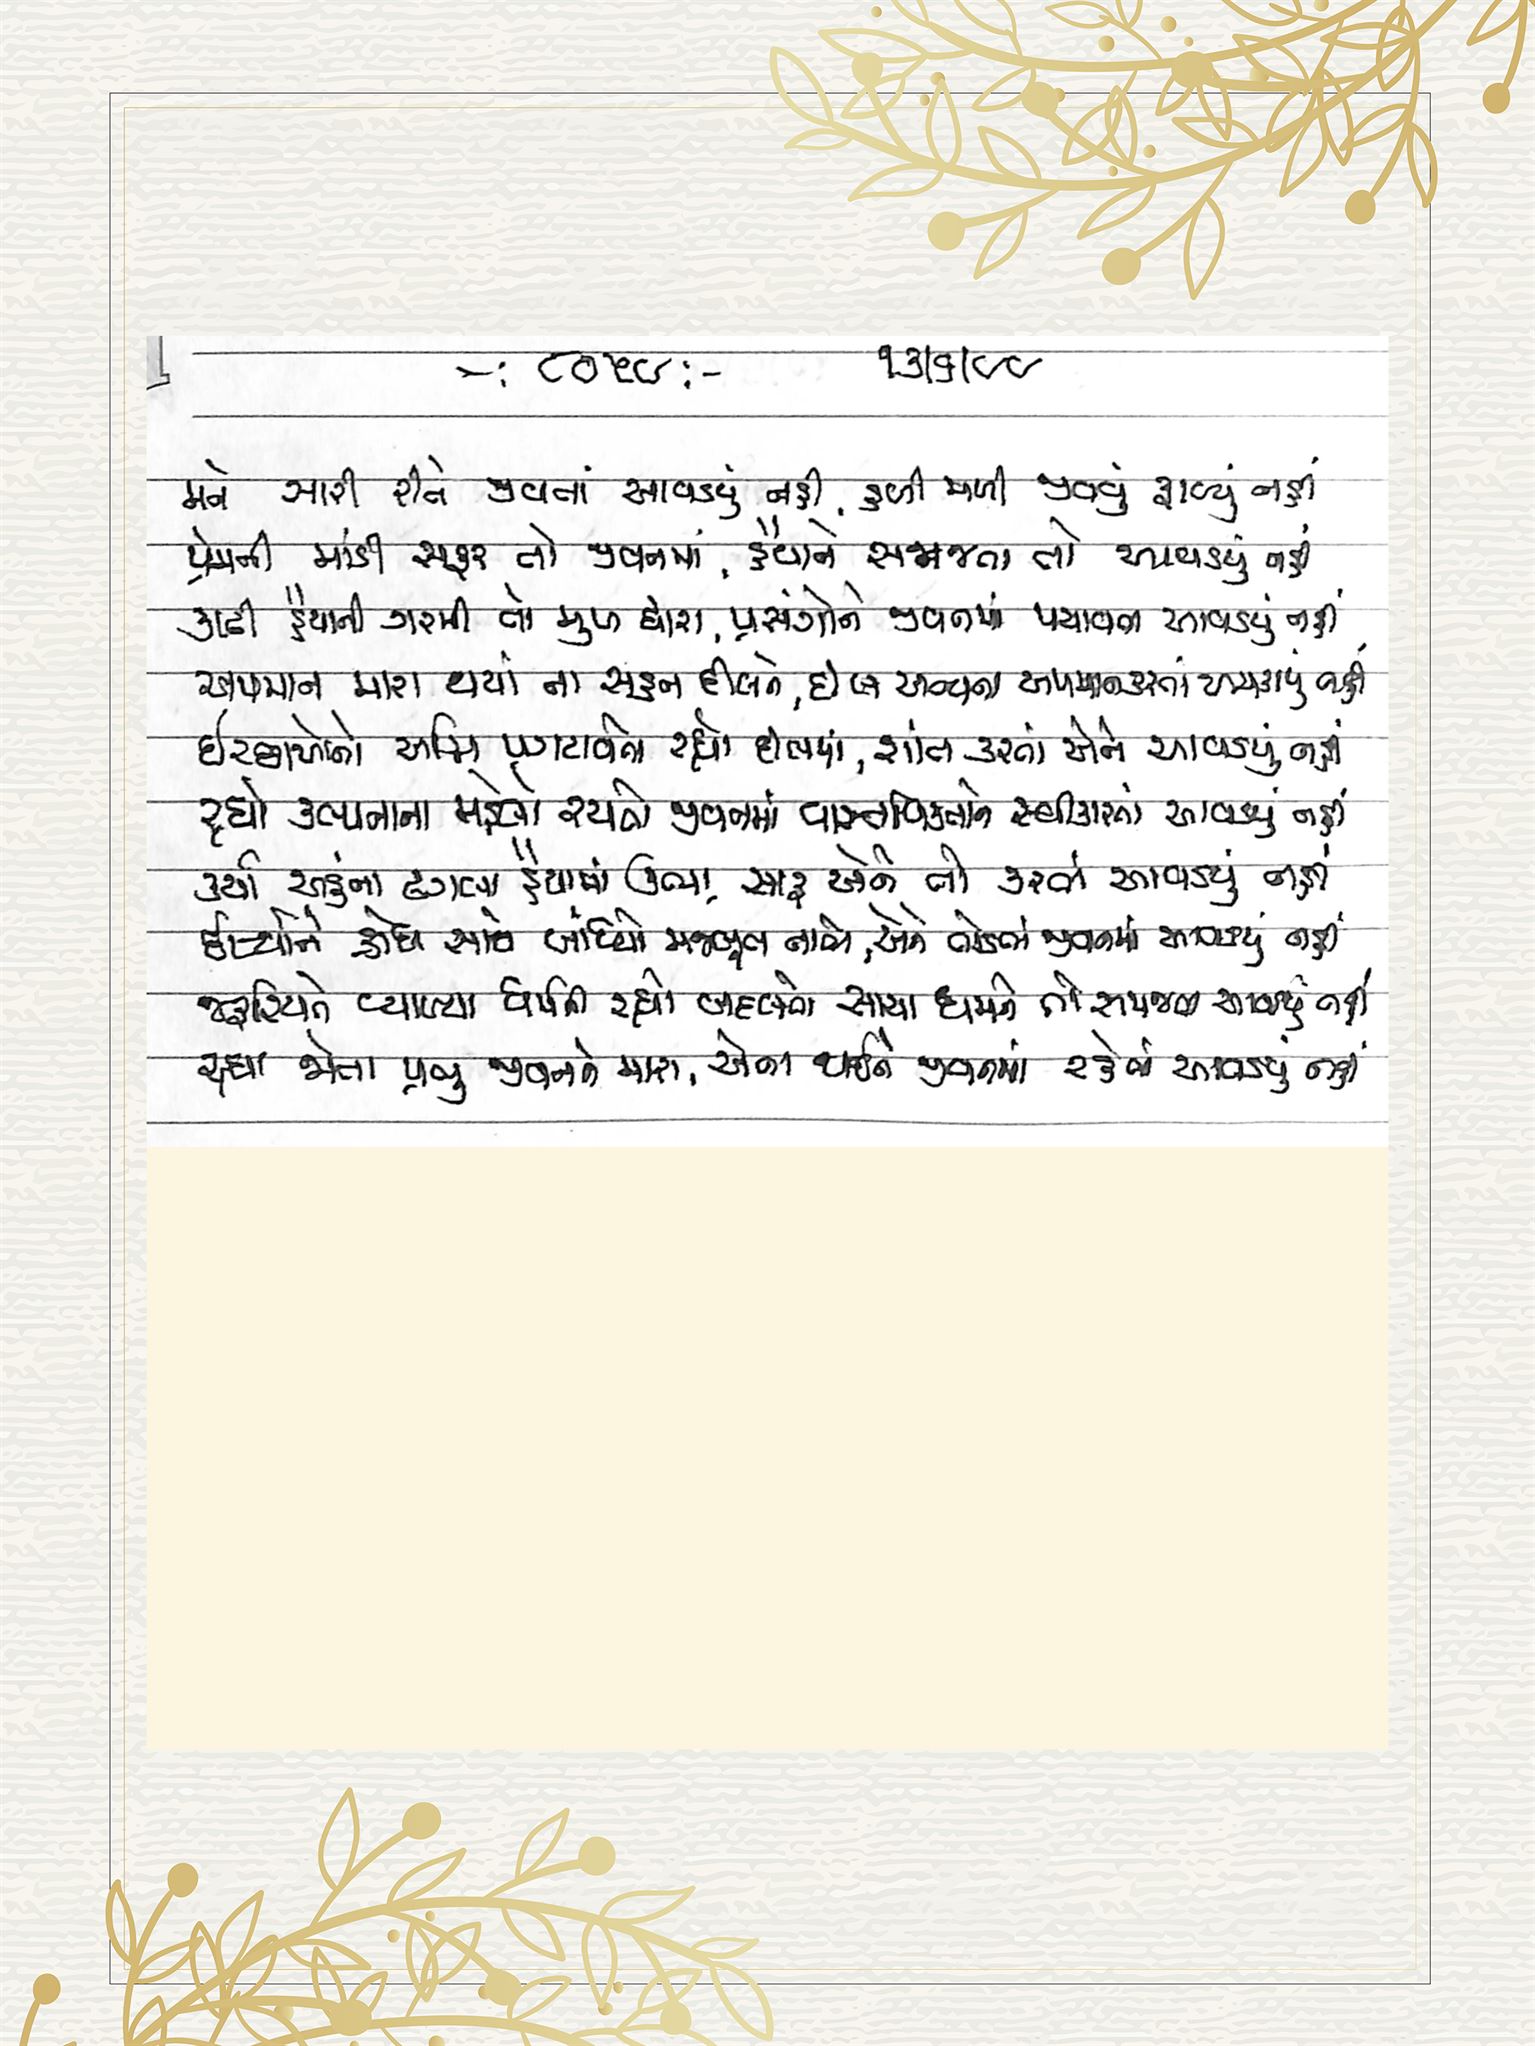 -: ૮૦૫૯ :- ૧૩/૬/૯૯
મને સારી રીતે જીવતાં આવડયું નહીં, હળી મળી જીવવું ફાવ્યું નહીં
પ્રેમની માંડી સફર તો જીવનમાં, હૈયાને સમજતા તો આવડયું નહીં
કાઢી હૈયાની ગરમી તો મુખ દ્વારા, પ્રસંગોને જીવનમાં પચાવતા આવડયું નહીં
અપમાન મારા થયાં ના સહન દીલને, અન્યના અપમાન કરતાં નહીં
ઈરછાઓનો અગ્નિ પ્રગટાવતો રહ્યો દીલમાં, શાંત કરતાં એને આવડયું નહીં
રહ્યો કલ્પનાના મહેલો રચતો જીવનમાં વાસ્તવિકતાને સ્વીકારતાં આવડયું નહીં
કર્યા અહંના ઢગલા હૈયામાં ઊભા, સાફ એને તો કરતાં આવડયું નહીં
ઈર્ષ્યાને ક્રોધ સાથે બાંધ્યો મજબૂત નાતો, એને તોડતાં જીવનમાં આવડયું નહીં
જરૂરિયાતે વ્યાખ્યા ધર્મની રહ્યો બદલતો સાચા ધર્મને તો સમજતા આવડયું નહીં
રહ્યા જોતા પ્રભુ જીવનને મારા, એના થઈને જીવનમાં રહેતાં આવડયું નહીં